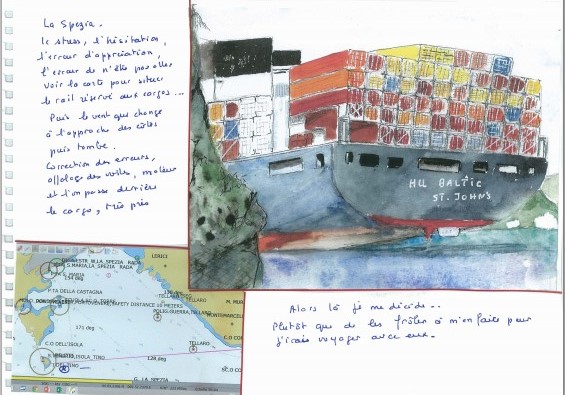 La Spezia.
le stress, l'hésitation,
l'erreur d'appréciation,
l'erreur de n'être pas allés
voir la carte pour situer
le rail réservé aux cargos...
Puis le vent qui change
à l'approche des côtes
puis tombe.
Correction des erreurs,
affalage des voiles, moteur
et l'on passe derrière
le cargo, très près
HU BALTIC
ST. JOHN'S
LERICI
W.LA SPEZIA RADA
S.MARIA,LA SPEZIA RADA
134 deg
P.TA DELLA CASTAGNA
TELLARO
SAFETY DISTANCE 50 METERS
POLIG.GUERRA,TELLARO
M. MUR
MONTEMARCELLO
171 deg
C.O DELL'ISOLA
TELLARO
C.CO
TINO
128 deg
G. LA SPEZIA
Alors là je me décide...
Plutôt que de les frôler à m'en faire peur
j'irais voyager avec eux.